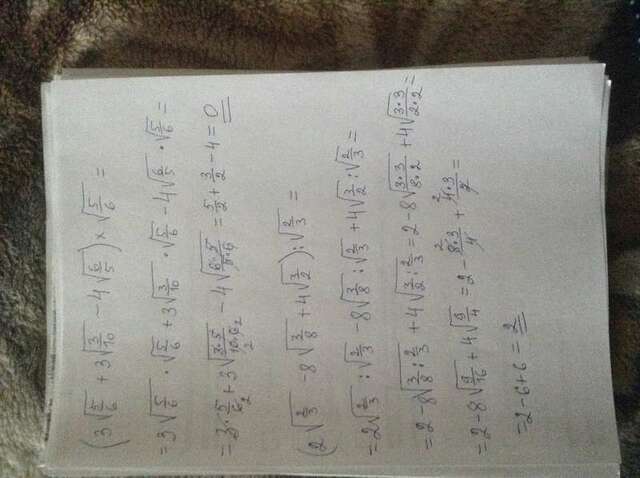 (3√(5/6) + 3√(3/10) − 4√(6/5)) × √(5/6) =
= 3√(5/6) · √(5/6) + 3√(3/10) · √(5/6) − 4√(6/5) · √(5/6) =
= 3 · 5/6₂ + 3√(3·5/10·6₂) − 4√(6·5/5·6) = 5/2 + 3/2 − 4 = 0
2
(2√(2/3) − 8√(3/8) + 4√(3/2)) : √(2/3) =
= 2√(2/3) : √(2/3) − 8√(3/8) : √(2/3) + 4√(3/2) : √(2/3) =
= 2 − 8√(3/8 : 2/3) + 4√(3/2 : 2/3) = 2 − 8√(3·3/8·2) + 4√(3·3/2·2) =
= 2 − 8√(9/16) + 4√(9/4) = 2 − ²8·3/4 + ²4·3/2 =
= 2 − 6 + 6 = 2